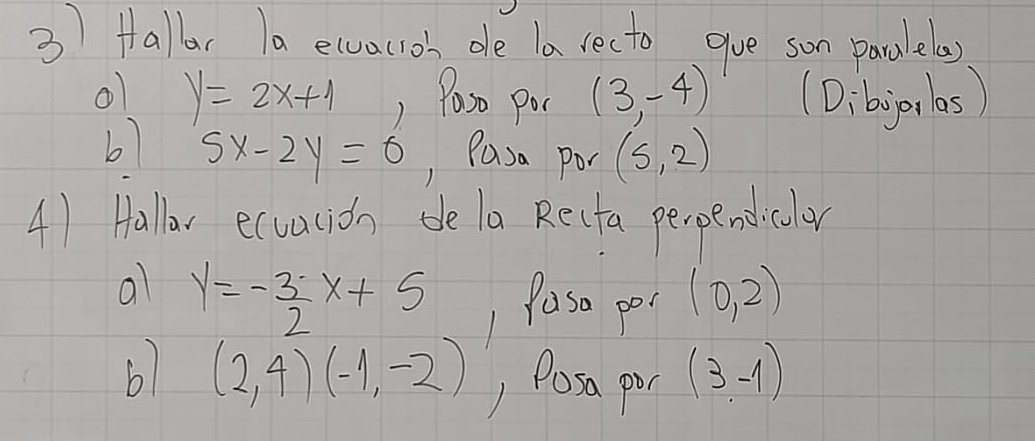 3) Hallar la ecuación de la recta que son paralelas
a) y = 2x+1 , Pasa por (3,-4) (Dibujarlas)
b) 5x-2y = 6 , Pasa por (5,2)
4) Hallar ecuación de la Recta perpendicular
a) y = -3/2 x + 5 , Pasa por (0,2)
b) (2,4) (-1,-2) , Pasa por (3,-1)